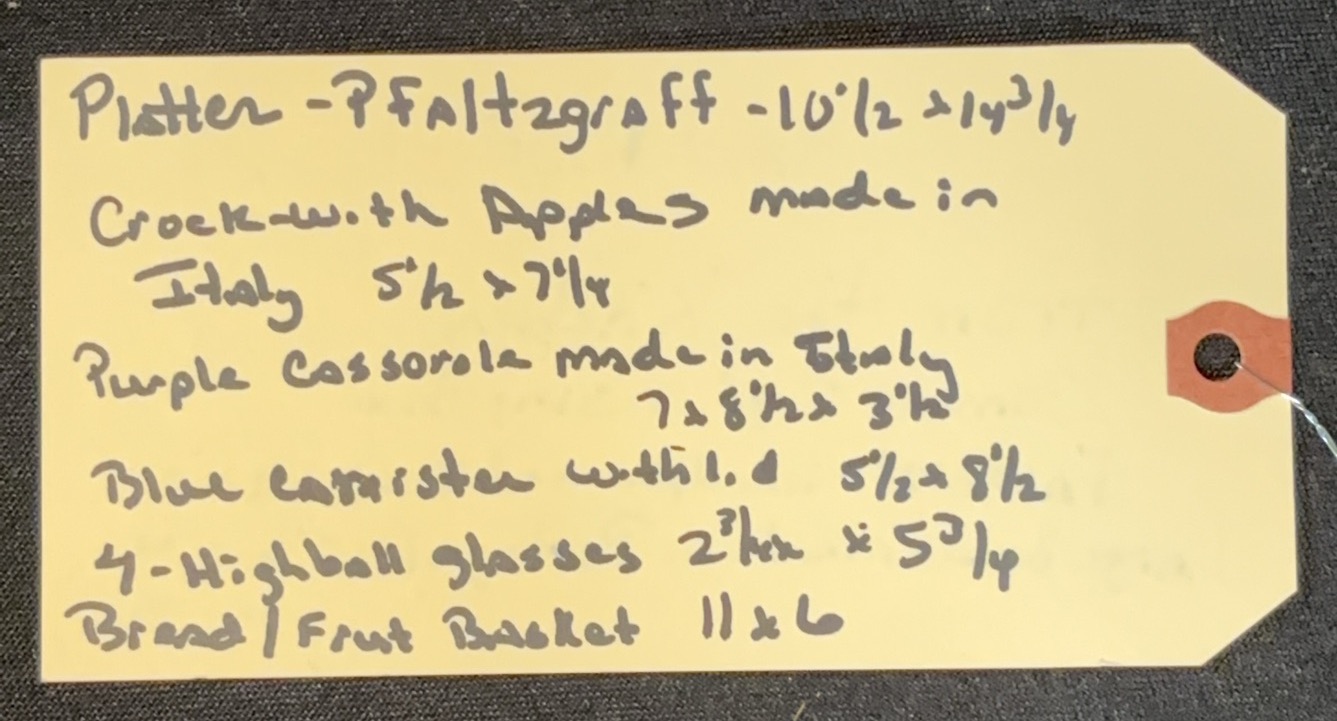 Platter - Pfaltzgraff - 10 1/2 x 14 3/4
Crock with Apples made in
Italy 5 1/2 x 7 1/4
Purple Cassorole made in Italy
7 x 8 1/2 x 3 1/2
Blue cannister with lid 5 1/2 x 8 1/2
4 - Highball glasses 2 3/4 x 5 3/4
Bread / Frut Basket 11 x 6